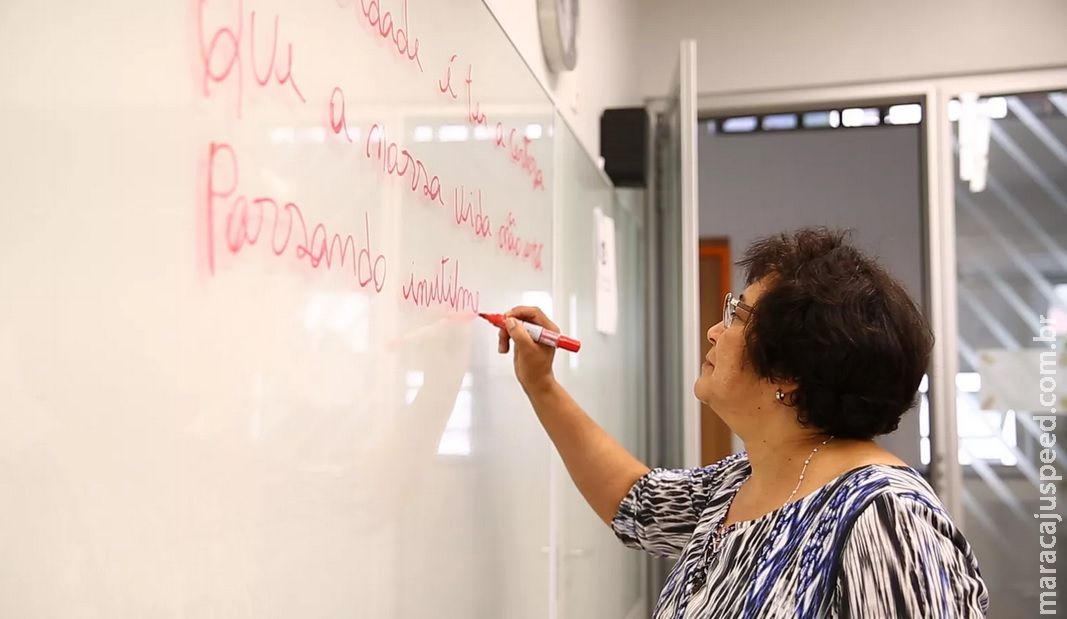 idade é ter a certeza
Que a nossa vida não está
Passando inutilme
maracajuspeed.com.br